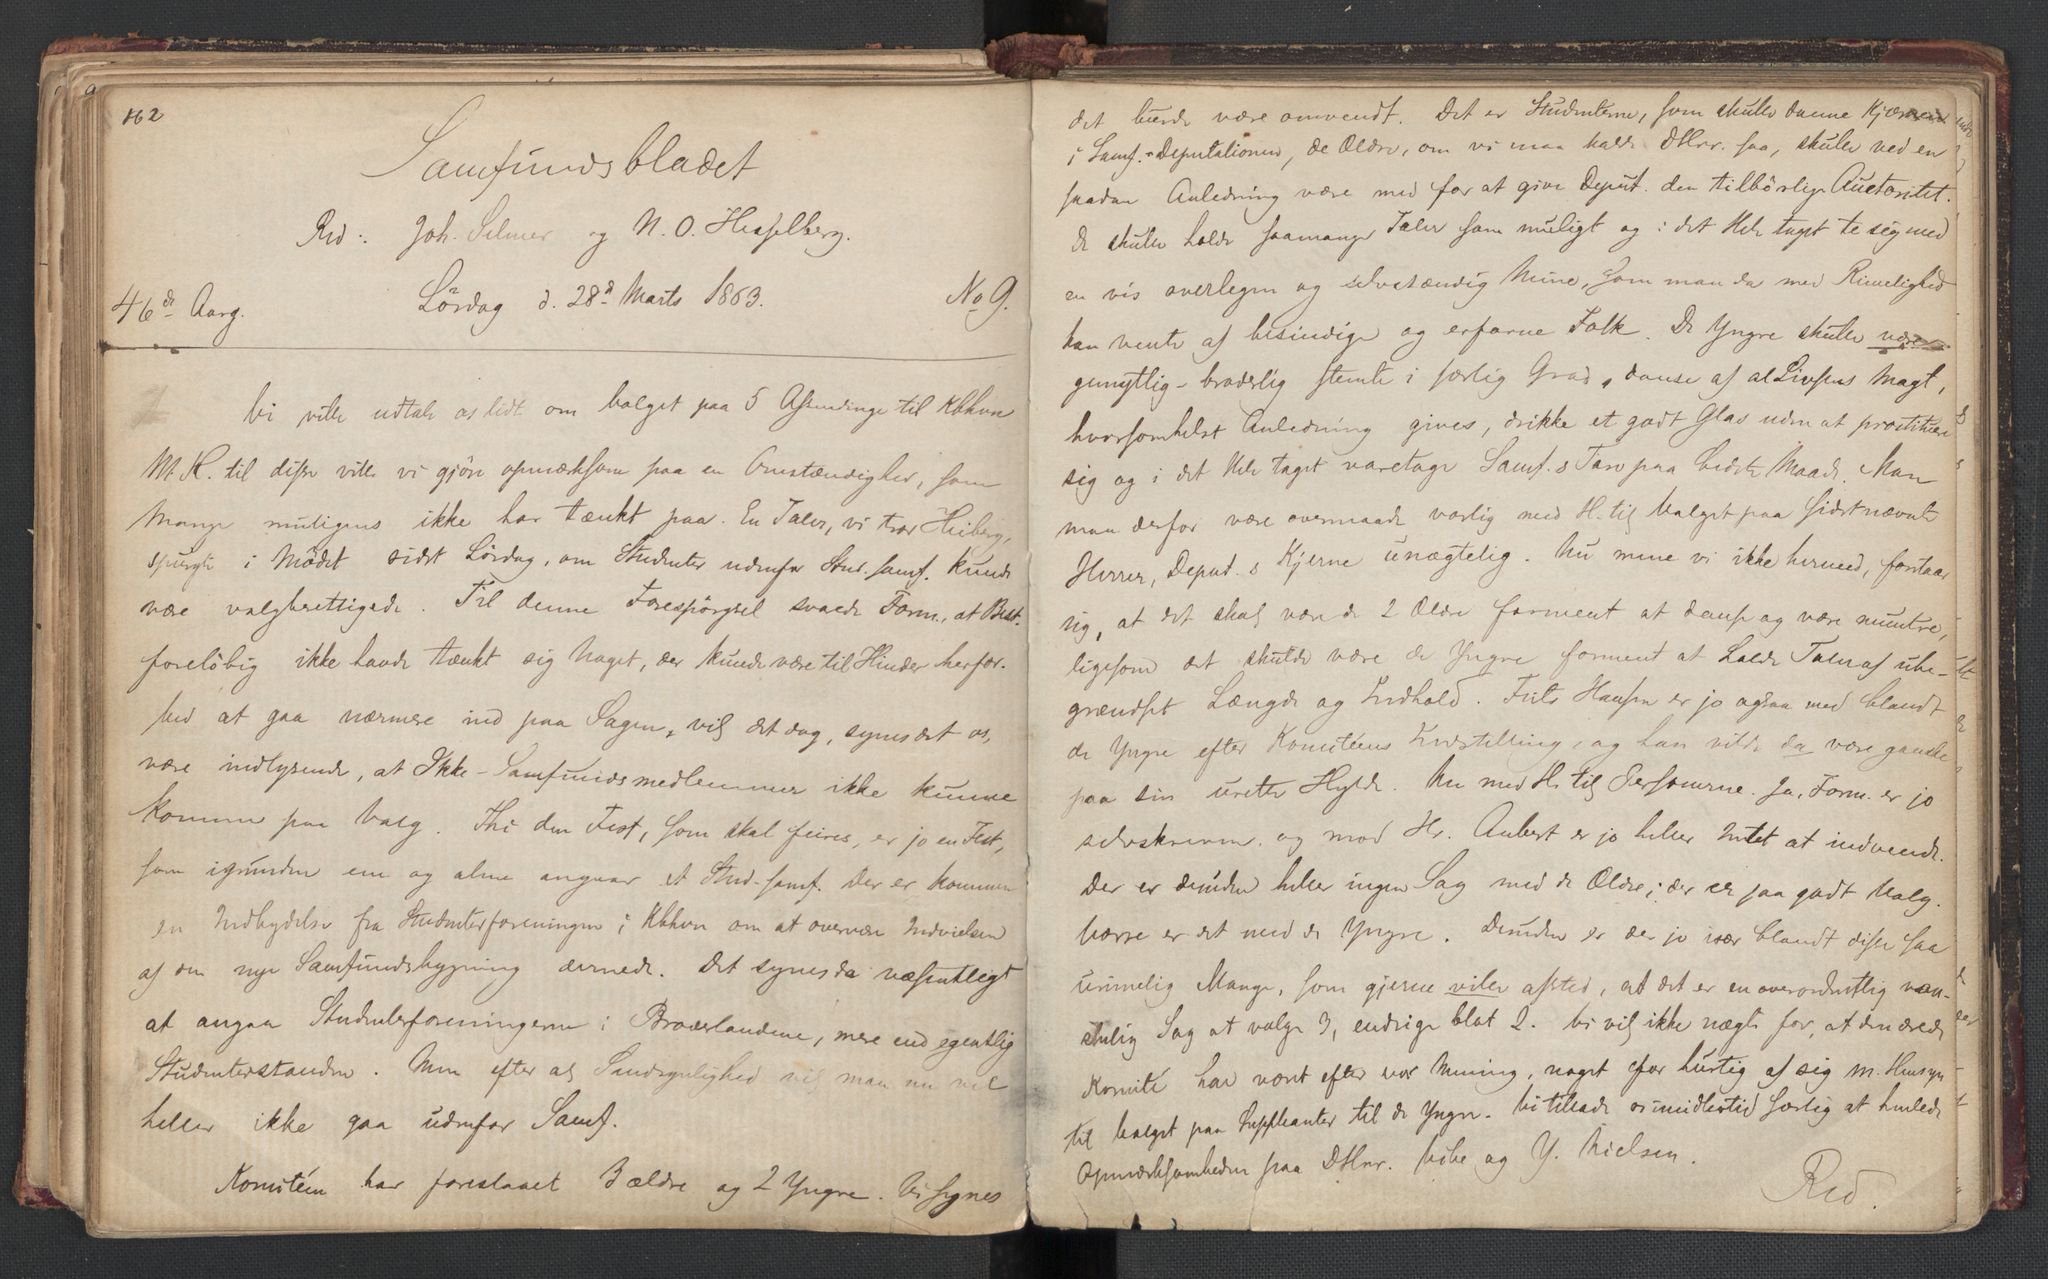 162
Samfundsbladet
Red.: Joh. Selmer og N. O. Hesselberg.
46de Aarg. Lördag d. 28d Marts 1863. No 9.
Vi ville udtale os lidt om Valget paa 5 Afsendinge til Kbhvn
M. H. til disse ville vi gjöre opmærksom paa en Omstændighed, som
Mange muligens ikke har tænkt paa. En Taler, vi tror Heiberg,
spurgte i Mödet sidst Lördag, om Studenter udenfor Stud. Samf. kunde
være valgberettigede. Til denne Forespörgsel svarede Form., at Best.
forelöbig ikke havde tænkt sig Noget, der kunde være til Hinder herfor.
Ved at gaa nærmere ind paa Sagen, vil det dog, synes det os,
være indlysende, at Ikke-Samfundsmedlemmer ikke kunne
komme paa Valg. Thi den Fest, som skal feires, er jo en Fest,
som igrunden ene og alene angaar et Stud-Samf. Der er kommen
en Indbydelse fra Studenterforeningen i Kbhvn om at overvære Indvielsen
af den nye Samfundsbygning dernede. Det synes da væsentligt
at angaa Studenterforeningerne i Broderlandene, mere end egentlig
Studenterstanden. Men efter al Sandsynlighed vil man nu vel
heller ikke gaa udenfor Samf.
Komitéen har foreslaaet 3 ældre og 2 Yngre. Vi synes
det burde være omvendt. Det er Studenterne, som skulle danne Kjærnen
i Samf.s Deputationen, de Ældre, om vi maa kalde DHrr. saa, skulle ved en
saadan Anledning være med for at give Deput. den tilbörlige Auctoritet.
De skulle holde saamange Taler som muligt og i det Hele taget te sig med
en vis overlegen og selvstændig Mine, som man da med Rimelighed
kan vente af besindige og erfarne Folk. De Yngre skulle være
gemytlig-broderlig stemte i særlig Grad, danse af al Livsens Magt,
hvorsomhelst Anledning gives, drikke et godt Glas uden at prostituere
sig og i det Hele taget varetage Samf.s Tarv paa bedste Maade. Man
maa derfor være overmaade varlig med H. til Valget paa sidstnævnte
Herrer, Deput.s Kjerne unægtelig. Nu mene vi ikke hermed, forstaar
sig, at det skal være de 2 Ældre forment at danse og være muntre,
ligesom det skulde være de Yngre forment at holde Taler af ube-
grændset Længde og Indhold. Frits Hansen er jo ogsaa med blandt
de Yngre efter Komitéens Indstilling, og han vilde da være ganske
paa sin urette Hylde. Nu med H. til Personerne. Ja, Form. er jo
selvskreven og mod Hr. Aubert er jo heller Intet at indvende.
Der er desuden heller ingen Sag med de Ældre; der er saa godt Valg.
Værre er det med de Yngre. Desuden er der jo især blandt disse saa
urimelig Mange, som gjerne ville afsted, at det er en overordentlig van-
skelig Sag at vælge 3, endsige blot 2. Vi vil ikke nægte for, at den ærede
Komité har været efter vor Mening, noget for hurtig af sig m. Hensyn
til Valget paa Suppleanter til de Yngre. Vi tillade os imidlertid særlig at henlede
Opmærksomheden paa DHrr. Vibe og Y. Nielsen.
Red.